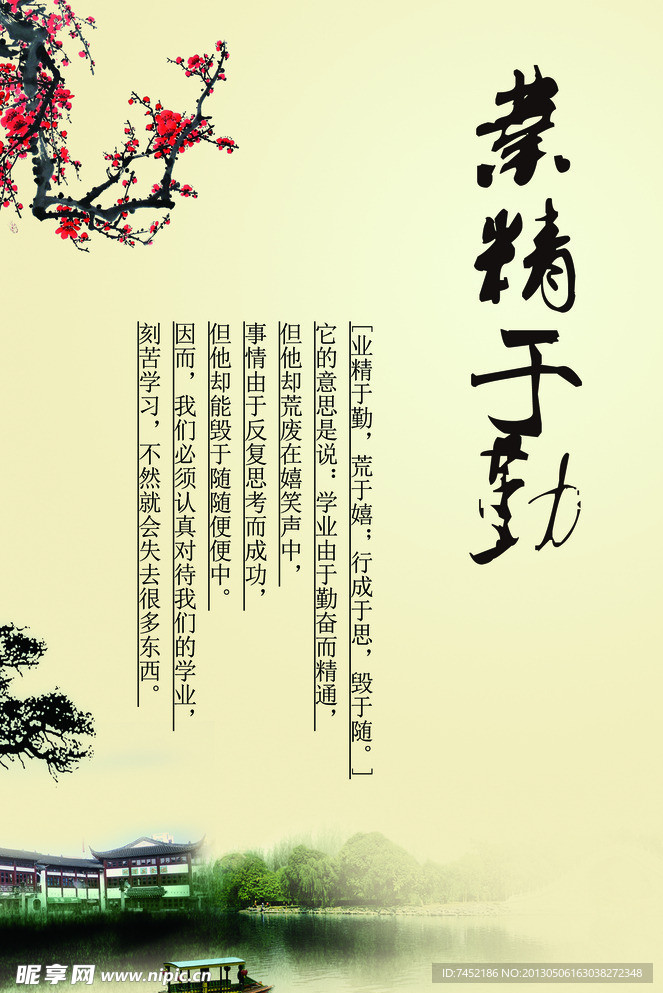 業精于勤
[业精于勤，荒于嬉；行成于思，毁于随。]
它的意思是说：学业由于勤奋而精通，
但他却荒废在嬉笑声中，
事情由于反复思考而成功，
但他却能毁于随随便便中。
因而，我们必须认真对待我们的学业，
刻苦学习，不然就会失去很多东西。
昵享网 www.nipic.cn
ID:7452186 NO:20130506163038272348